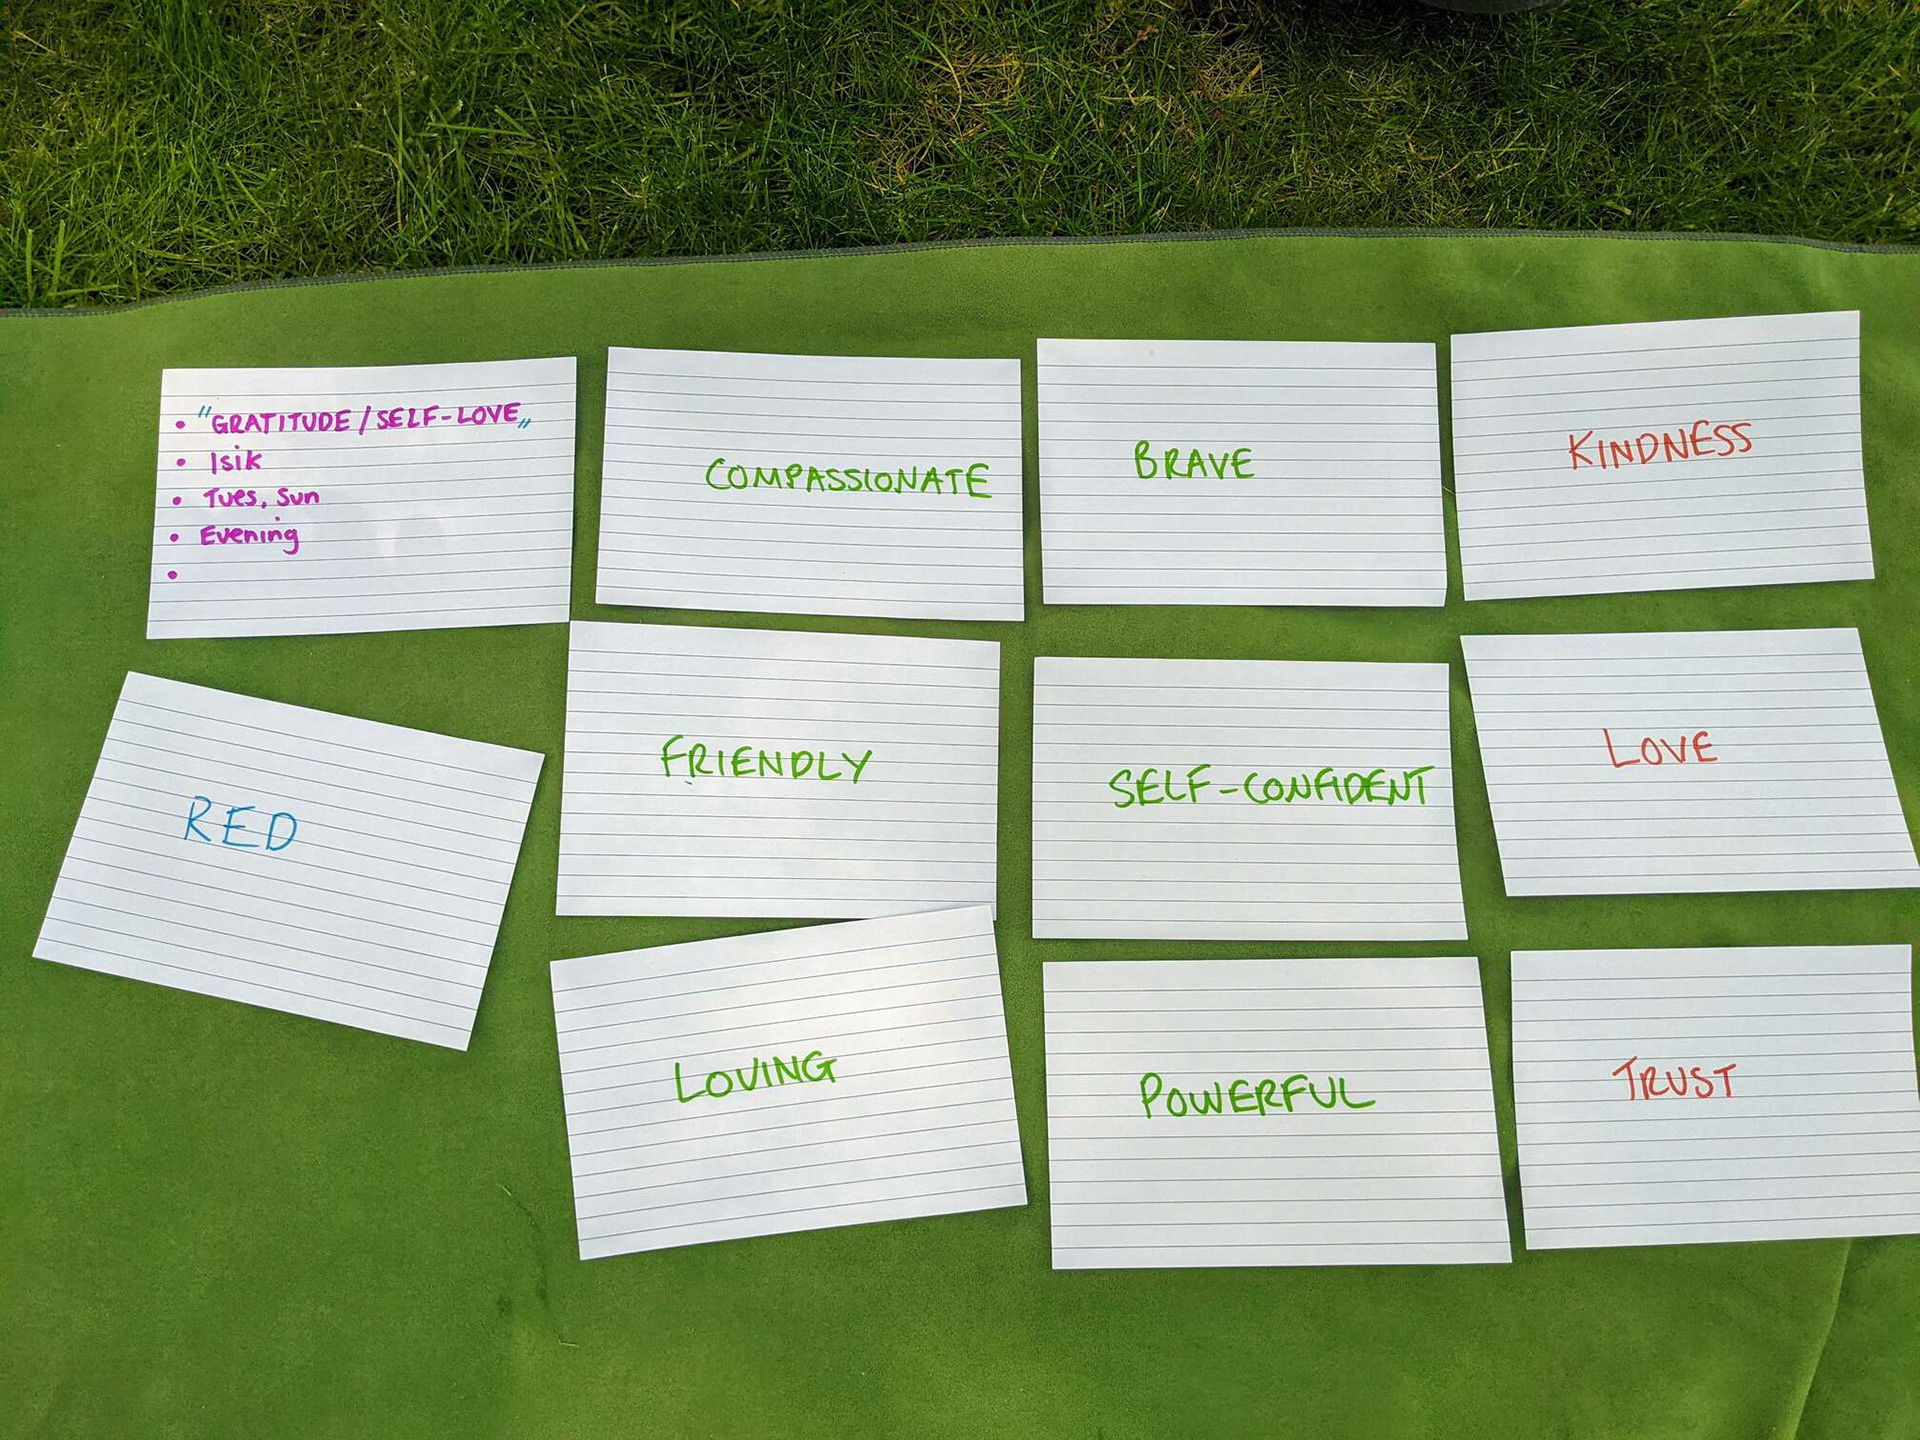 • "GRATITUDE / SELF-LOVE„
• Isik
• Tues, Sun
• Evening
•
COMPASSIONATE
BRAVE
KINDNESS
RED
FRIENDLY
SELF-CONFIDENT
LOVE
LOVING
POWERFUL
TRUST